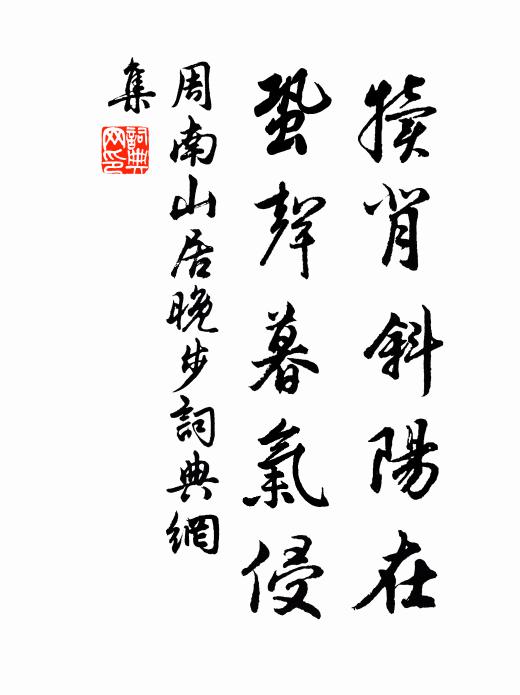 犢背斜陽在
蛩聲暮氣侵
周南山居晚步詞典網
集
詞典网印